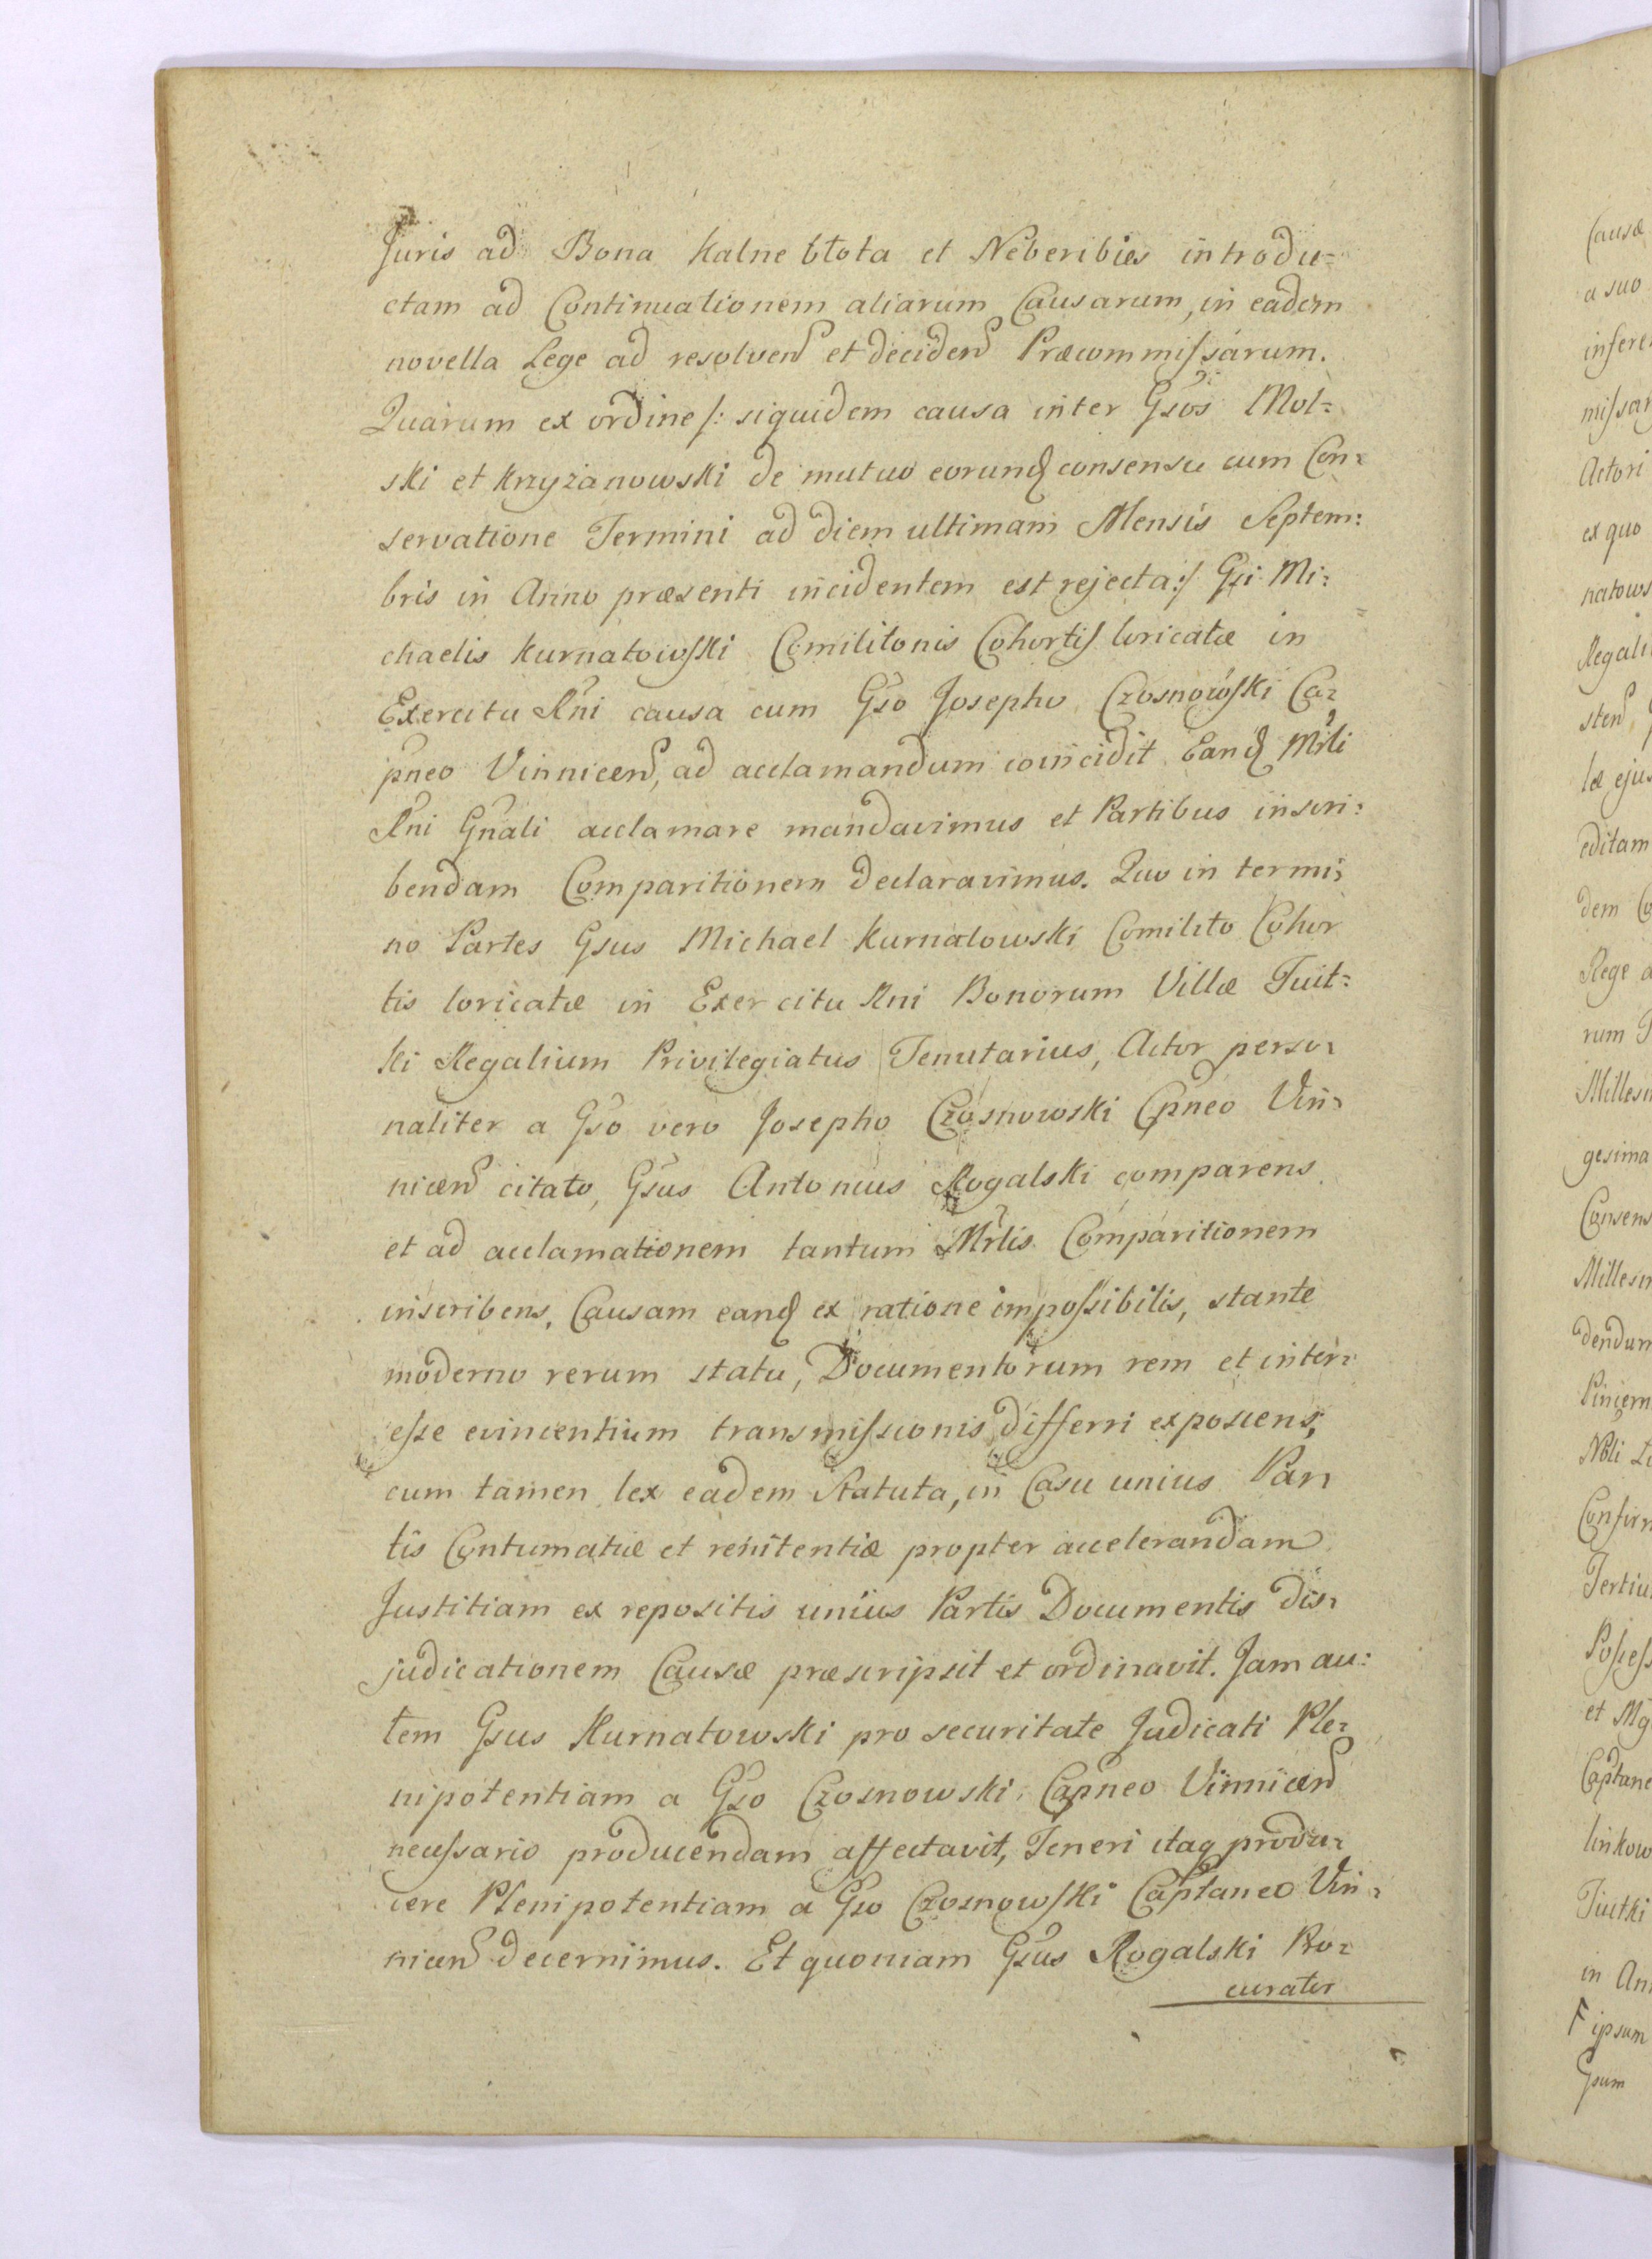 Juris ad Bona Kalne błota et Neberibies introdu=
ctam ad Continuationem aliarum Causarum, in eadem
novella Lege ad resolven et deciden Præcommissarum.
Quarum ex ordine /: siquidem causa inter Gsos Mol=
ski et Krzyżanowski de mutuo eorund consensu cum Con=
servatione Termini ad diem ultimam Mensis Septem:
bris in Anno præsenti incidentem est rejecta :/ Gsi Mi=
chaelis Kurnatowski Comilitonis Cohortis loricatæ in
Exercitu Rni causa cum Gso Josepho Czosnowski Ca=
pneo Vinnicen, ad acclamandum coincidit. Eand Mrli
Rni Gnali acclamare mandavimus et Partibus inscri=
bendam Comparitionem declaravimus. Quo in termi=
no Partes Gsus Michael Kurnatowski Comilito Cohor
tis loricatæ in Exercitu Rni Bonorum Villæ Tuit=
ki Regalium Privilegiatus Tenutarius, Actor perso=
naliter a Gso vero Josepho Czosnowski Cpneo Vin=
nicen citato, Gsus Antonius Rogalski comparens
et ad acclamationem tantum Mrlis Comparitionem
inscribens, Causam eand ex ratione impossibilis, stante
moderno rerum statu, Documentorum rem et inter=
esse evincentium transmissionis differri exposcens;
cum tamen lex eadem Statuta, in Casu unius Par=
tis Contumatiæ et renitentiæ propter accelerandam
Justitiam ex repositis unius Partis Documentis dis=
judicationem Causæ præscripsit et ordinavit. Jam au:
tem Gsus Kurnatowski pro securitate Judicati Ple=
nipotentiam a Gso Czosnowski Capneo Vinnicen
necessario producendam affectavit, Teneri itaq produ=
cere Plenipotentiam a Gso Czosnowski Captaneo Vin=
nicen decernimus. Et quoniam Gsus Rogalski Pro=
curator
Causæ
a suo
ex quo
editam
Rege
rum
gesima
dendum
et
Tuitki
in
ipsum
Gsum